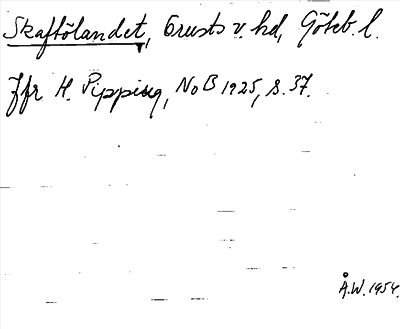 Skaftölandet, Orusts v. hd, Göteb. l.
Jfr H. Pipping, NoB 1925, s. 37.
Å.W. 1954.